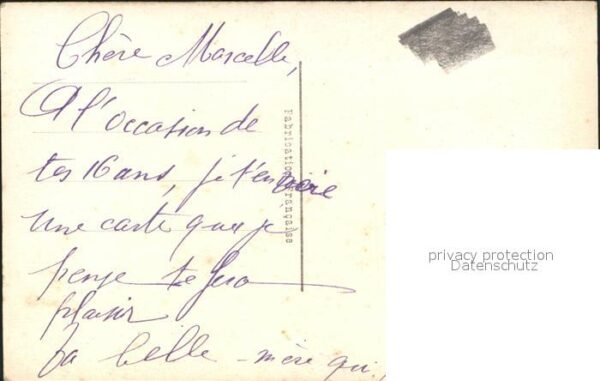 Chère Marcelle,
A l'occasion de
tes 16 ans, je t'envoie
une carte que je
pense te fera
plaisir
Ta belle-mère qui
Fabrication Française
privacy protection
Datenschutz